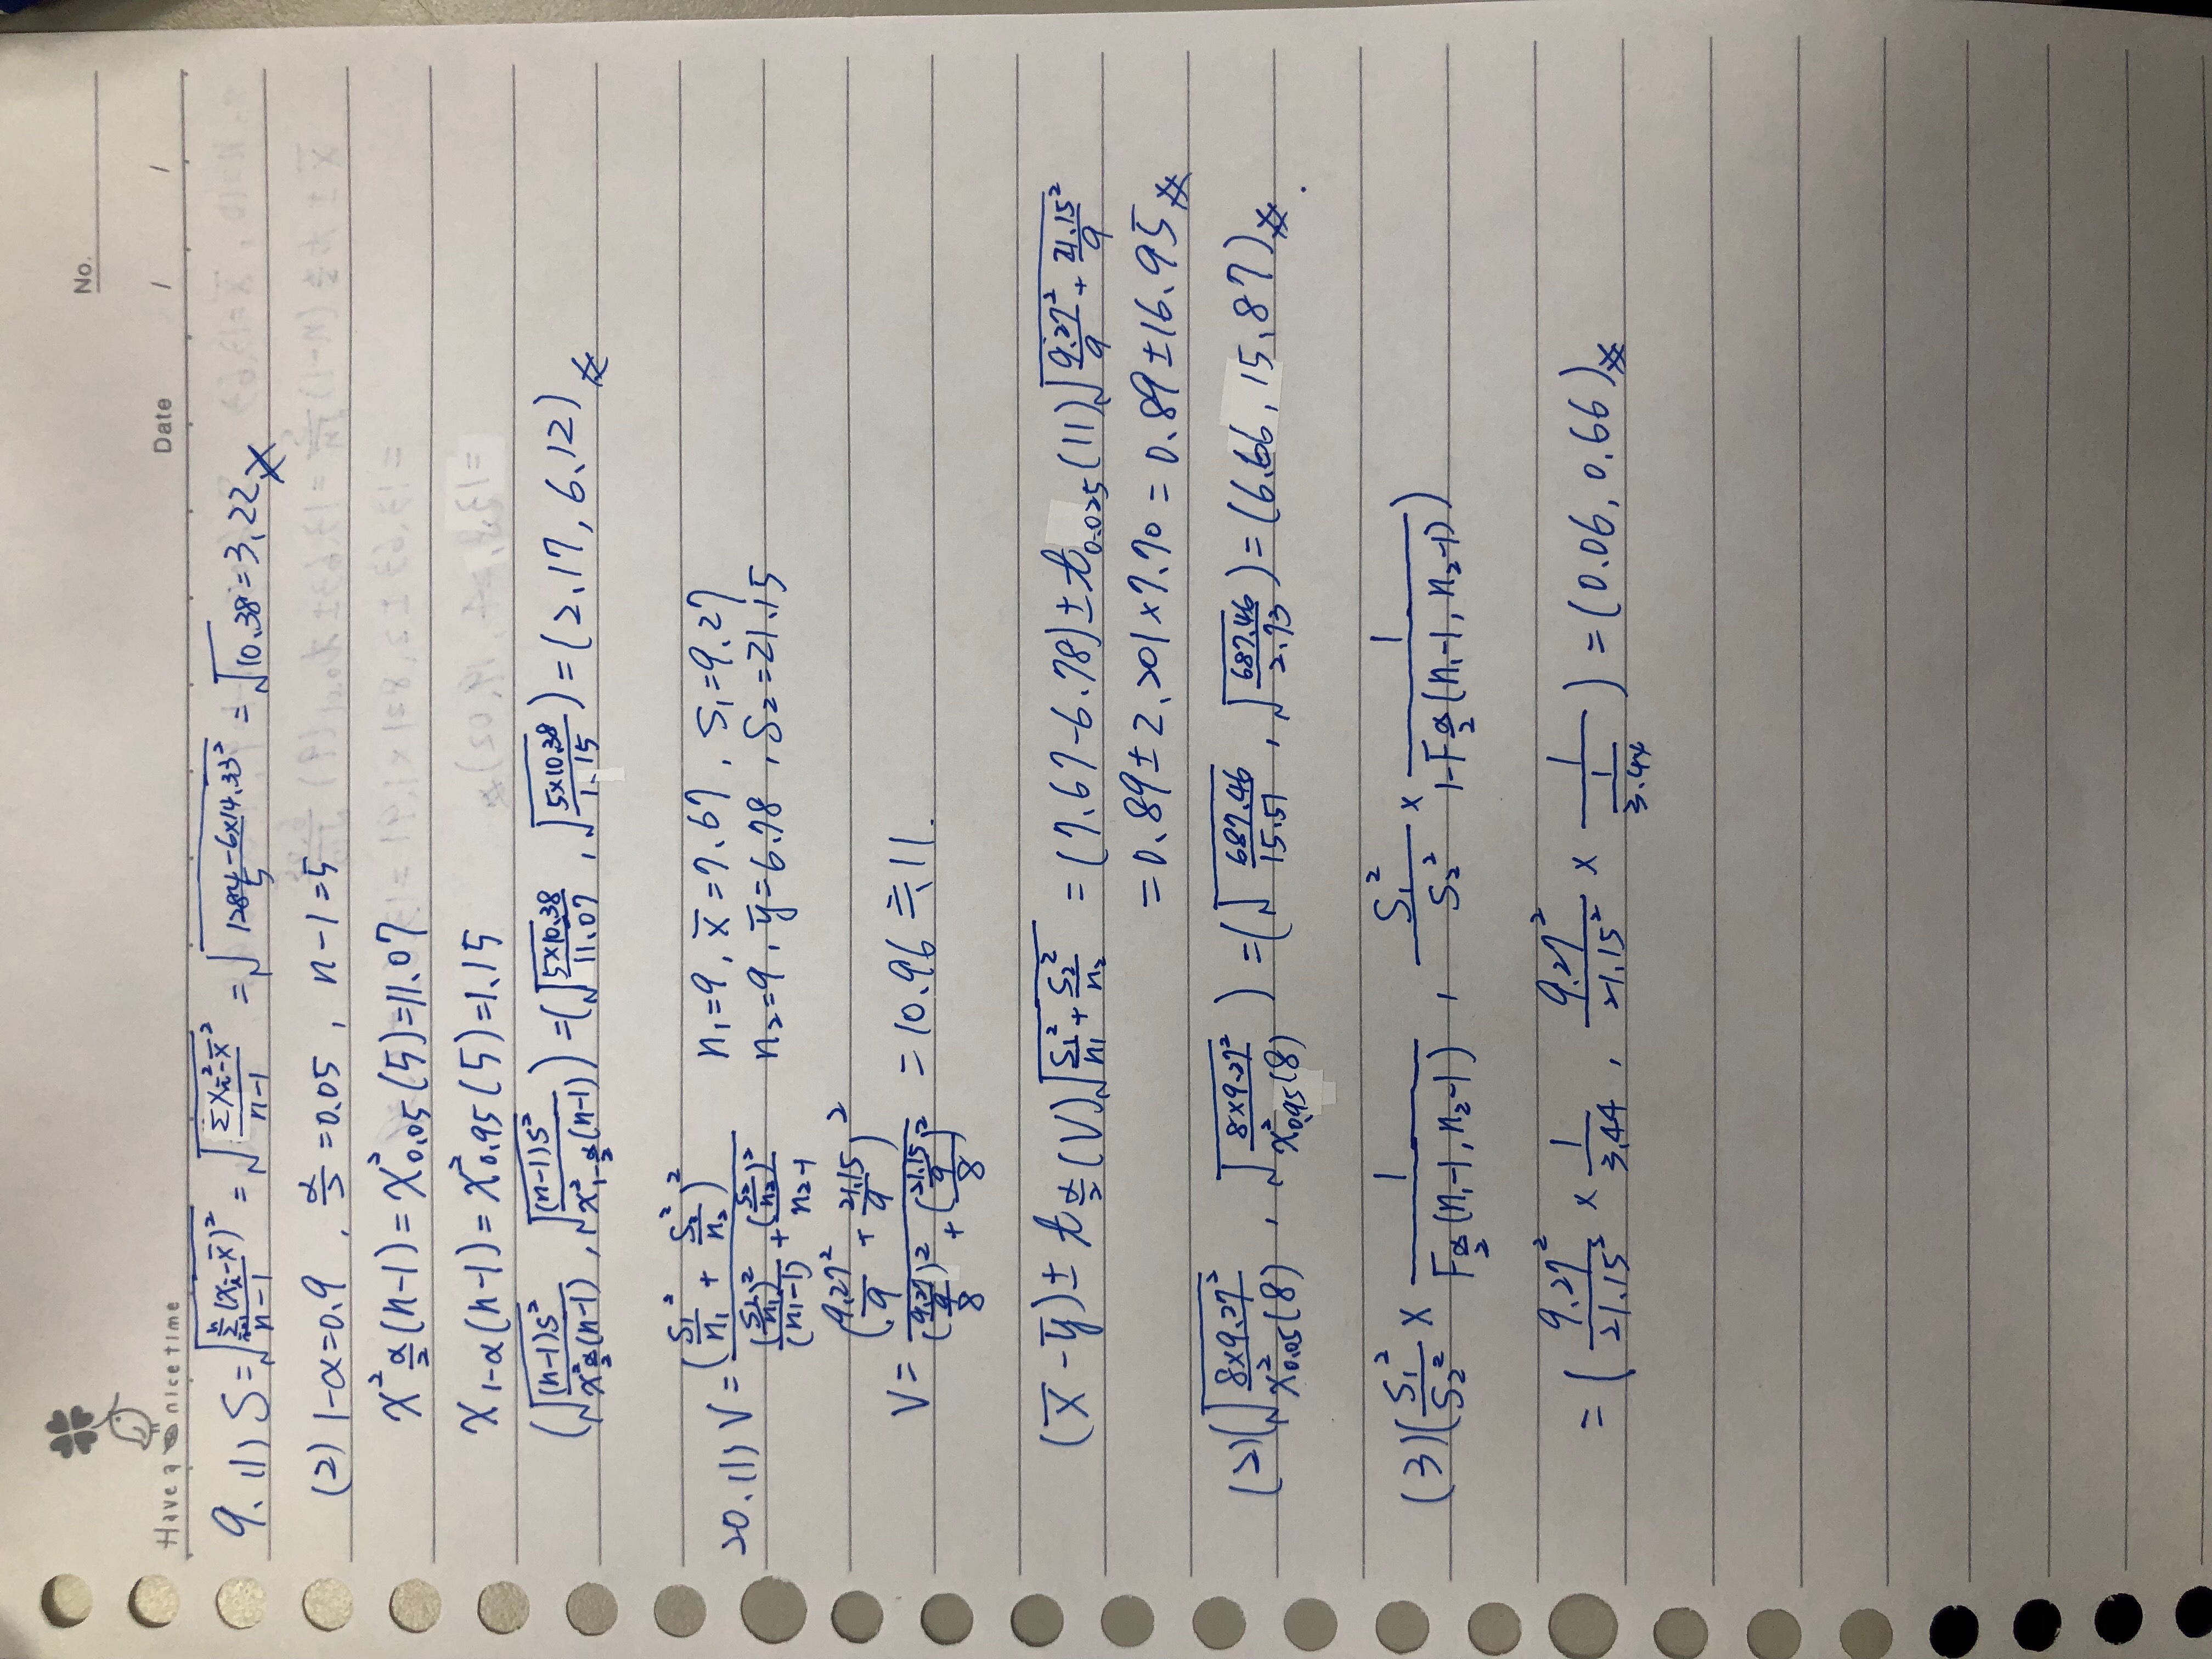 No.
Have a nice time
Date / /
9. (1) S = √(Σⁿᵢ₌₁(xᵢ-x̄)²/n-1) = √(Σxᵢ²-x̄²/n-1) = √(1284-6×14.33²/5) = √10.38 = 3.22
(2) 1-α=0.9 , α/2=0.05 , n-1=5
χ² α/2 (n-1) = χ²0.05 (5) = 11.07
χ 1-α (n-1) = χ²0.95 (5) = 1.15
(√((n-1)S²/χ²α/2(n-1)) , √((n-1)S²/χ²1-α/2(n-1))) = (√(5×10.38/11.07) , √(5×10.38/1.15)) = (2.17, 6.12)
20. (1) V = (S₁²/n₁ + S₂²/n₂)² / ((S₁/n₁)²/(n₁-1) + (S₂/n₂)²/n₂-1)
n₁=9, x̄=7.67, S₁=9.27
n₂=9, ȳ=6.78, S₂=21.15
V = (9.27²/9 + 21.15/9)² / ((9.27/9)²/8 + (21.15/9)²/8) = 10.96 ≒ 11.
(x̄-ȳ) ± t α/2 (V) √(S₁²/n₁ + S₂²/n₂) = (7.67-6.78) ± t0.025 (11) √(9.27²/9 + 21.15²/9)
= 0.89 ± 2.201×7.70 = 0.89 ± 16.95
(2) (√(8×9.27²/χ²0.05(8)) , √(8×9.27²/χ²0.95(8))) = (√(687.46/15.51) , √(687.46/2.73)) = (6.66, 15.87)
(3) (S₁²/S₂² × 1/Fα/2(n₁-1, n₂-1) , S₁²/S₂² × 1/1-Fα/2(n₁-1, n₂-1))
= (9.27²/21.15² × 1/3.44 , 9.27²/21.15² × 1/(1/3.44)) = (0.06, 0.66)